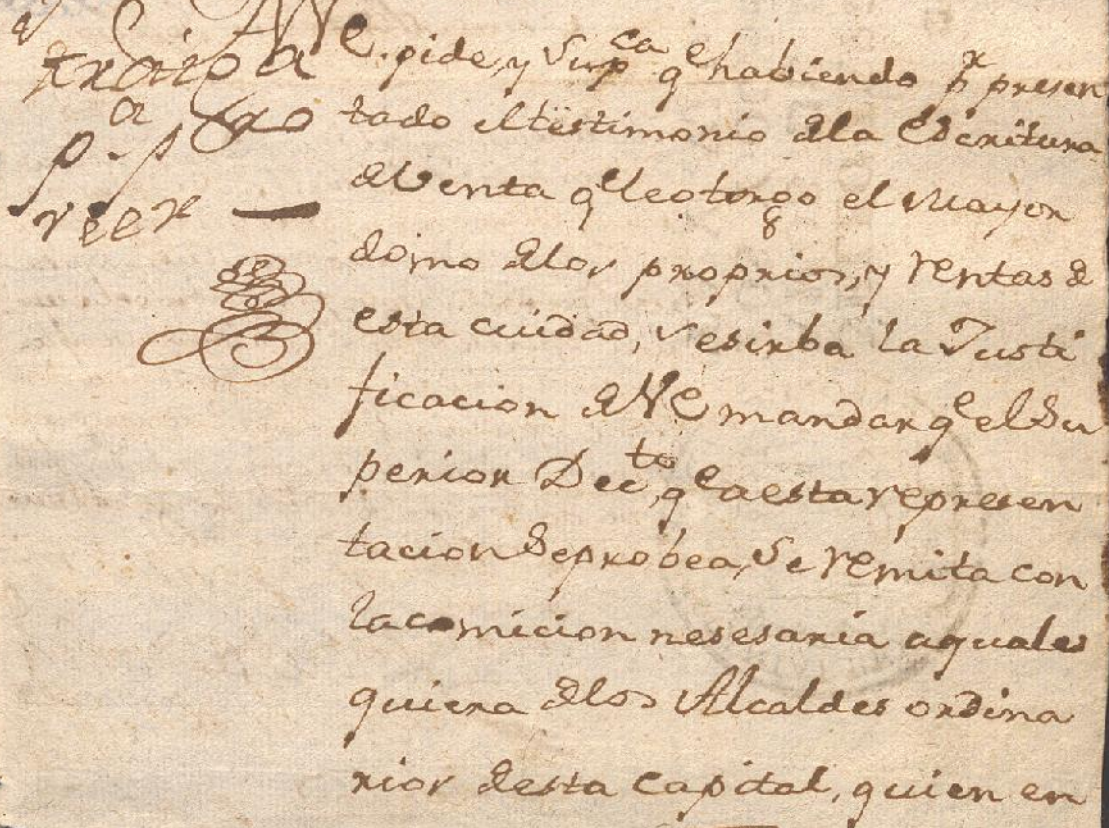 A VE. pide, y Supca qe habiendo pr presen
tado el testimonio dela Escritura
de Venta qe le otorgo el Mayor
domo delos proprios, y Rentas de
esta ciudad, se sirba la Justi
ficacion de VE mandar qe el Su
perior Decto, qe a esta represen
tacion se probea, Se Remita con
la comicion nesesaria a quales
quiera delos Alcaldes ordina
rios desta Capital, quien en
traiga
a
p.r p
veer —